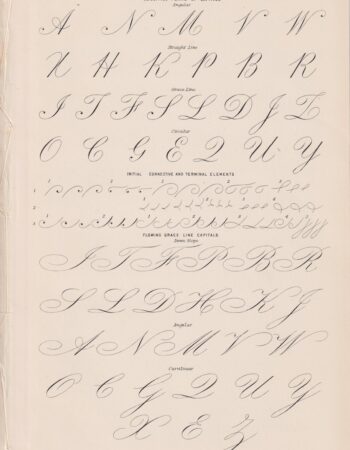 Angular
A N M V W
Straight Line
X H K P B R
Grace Line
I T F S L D J Z
Circular
O C G E Q U Y
INITIAL CONNECTIVE AND TERMINAL ELEMENTS
FLOWING GRACE LINE CAPITALS
Stems Slope
I T F P B R
S L D H K J
Angular
A N M V W
Curvilinear
O C G Q U Y
X E Z